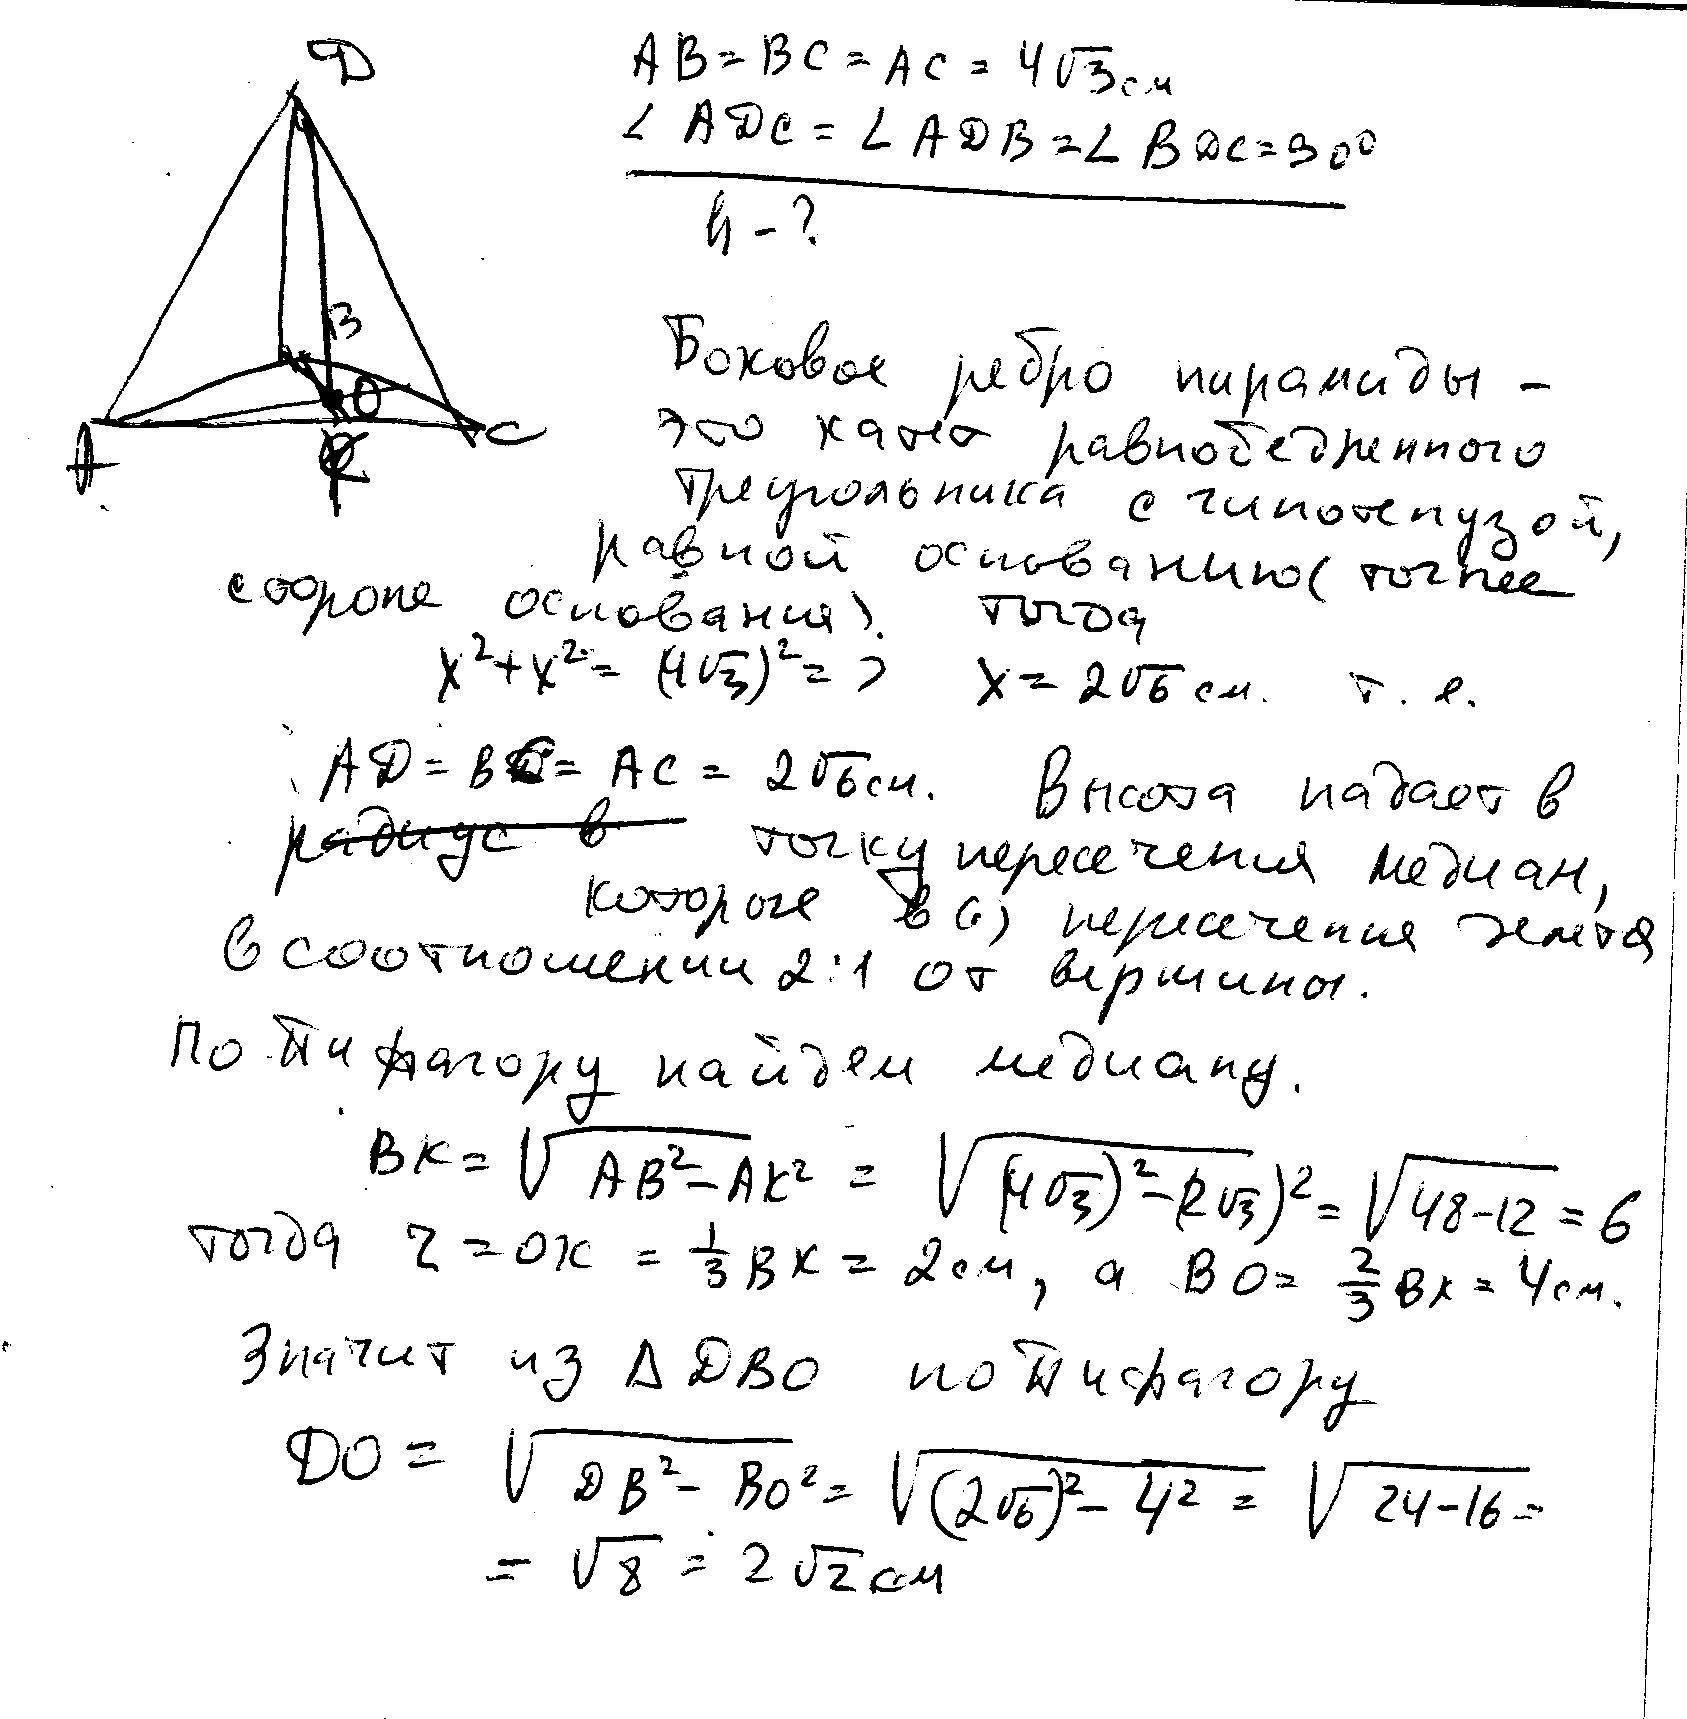 D
AB = BC = AC = 4√3 см
∠ ADC = ∠ ADB = ∠ BDC = 90°
h - ?
B
O
A
C
K
Боковое ребро пирамиды -
это катет равнобедренного
треугольника с гипотенузой,
равной основанию (точнее
стороне основания). Тогда
x² + x² = (4√3)² => x = 2√6 см. т. е.
AD = BC = AC = 2√6 см. Высота падает в
радиус в точку пересечения медиан,
которое в пересечения делятся
в соотношении 2:1 от вершины.
По Пифагору найдем медиану.
BK = √AB² - AK² = √(4√3)² - (2√3)² = √48-12 = 6
тогда r = OK = 1/3 BK = 2 см, а BO = 2/3 BK = 4 см.
Значит из Δ DBO по Пифагору
DO = √DB² - BO² = √(2√6)² - 4² = √24-16 =
= √8 = 2√2 см